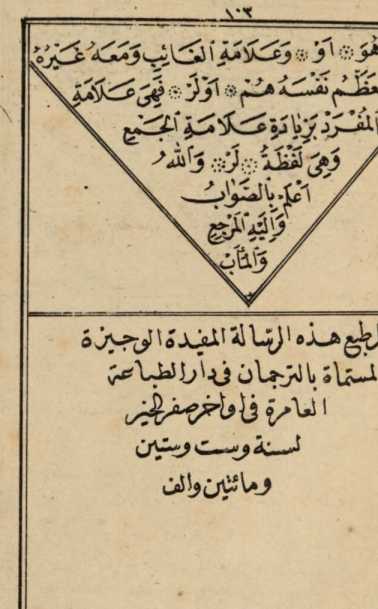 ١٠٣
هُوَ ۞ اَوْ ۞ وَعَلَامَةِ الْغَائِبِ وَمَعَهُ غَيْرُهُ
عَظَّمُ نَفْسَهُ هُمْ ۞ اَوْلَرْ ۞ فَهِىَ عَلَامَةِ
الْمُفْرَدْ بِزِيَادَةِ عَلَامَةِ الْجَمْعِ
وَهِىَ لَفْظَةُ ۞ لَرْ ۞ وَاللهُ
اَعْلَمْ بِالصَّوَابُ
وَاِلَيْهِ الْمَرْجِعِ
وَالْمَآبْ
طبع هذه الرسالة المفيدة الوجيزة
المسماة بالترجمان فى دار الطباعة
العامرة فى اواخر صفر الخير
لسنة وست وستين
ومائتين والف